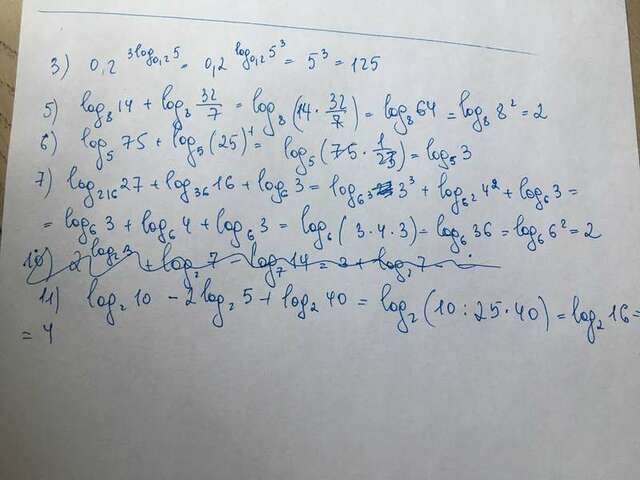 3) 0,2^{3log_{0,2}5} = 0,2^{log_{0,2}5^3} = 5^3 = 125
5) log_8 14 + log_8 32/7 = log_8 (14 · 32/7) = log_8 64 = log_8 8^2 = 2
6) log_5 75 + log_5 (25)^{-1} = log_5 (75 · 1/25) = log_5 3
7) log_{216} 27 + log_{36} 16 + log_6 3 = log_{6^3} 3^3 + log_{6^2} 4^2 + log_6 3 =
= log_6 3 + log_6 4 + log_6 3 = log_6 (3·4·3) = log_6 36 = log_6 6^2 = 2
10) 2^{log_2 3} + log_2 7 - log_7 14 = 3 + log_2 7 -
11) log_2 10 - 2log_2 5 + log_2 40 = log_2 (10 : 25 · 40) = log_2 16 =
= 4